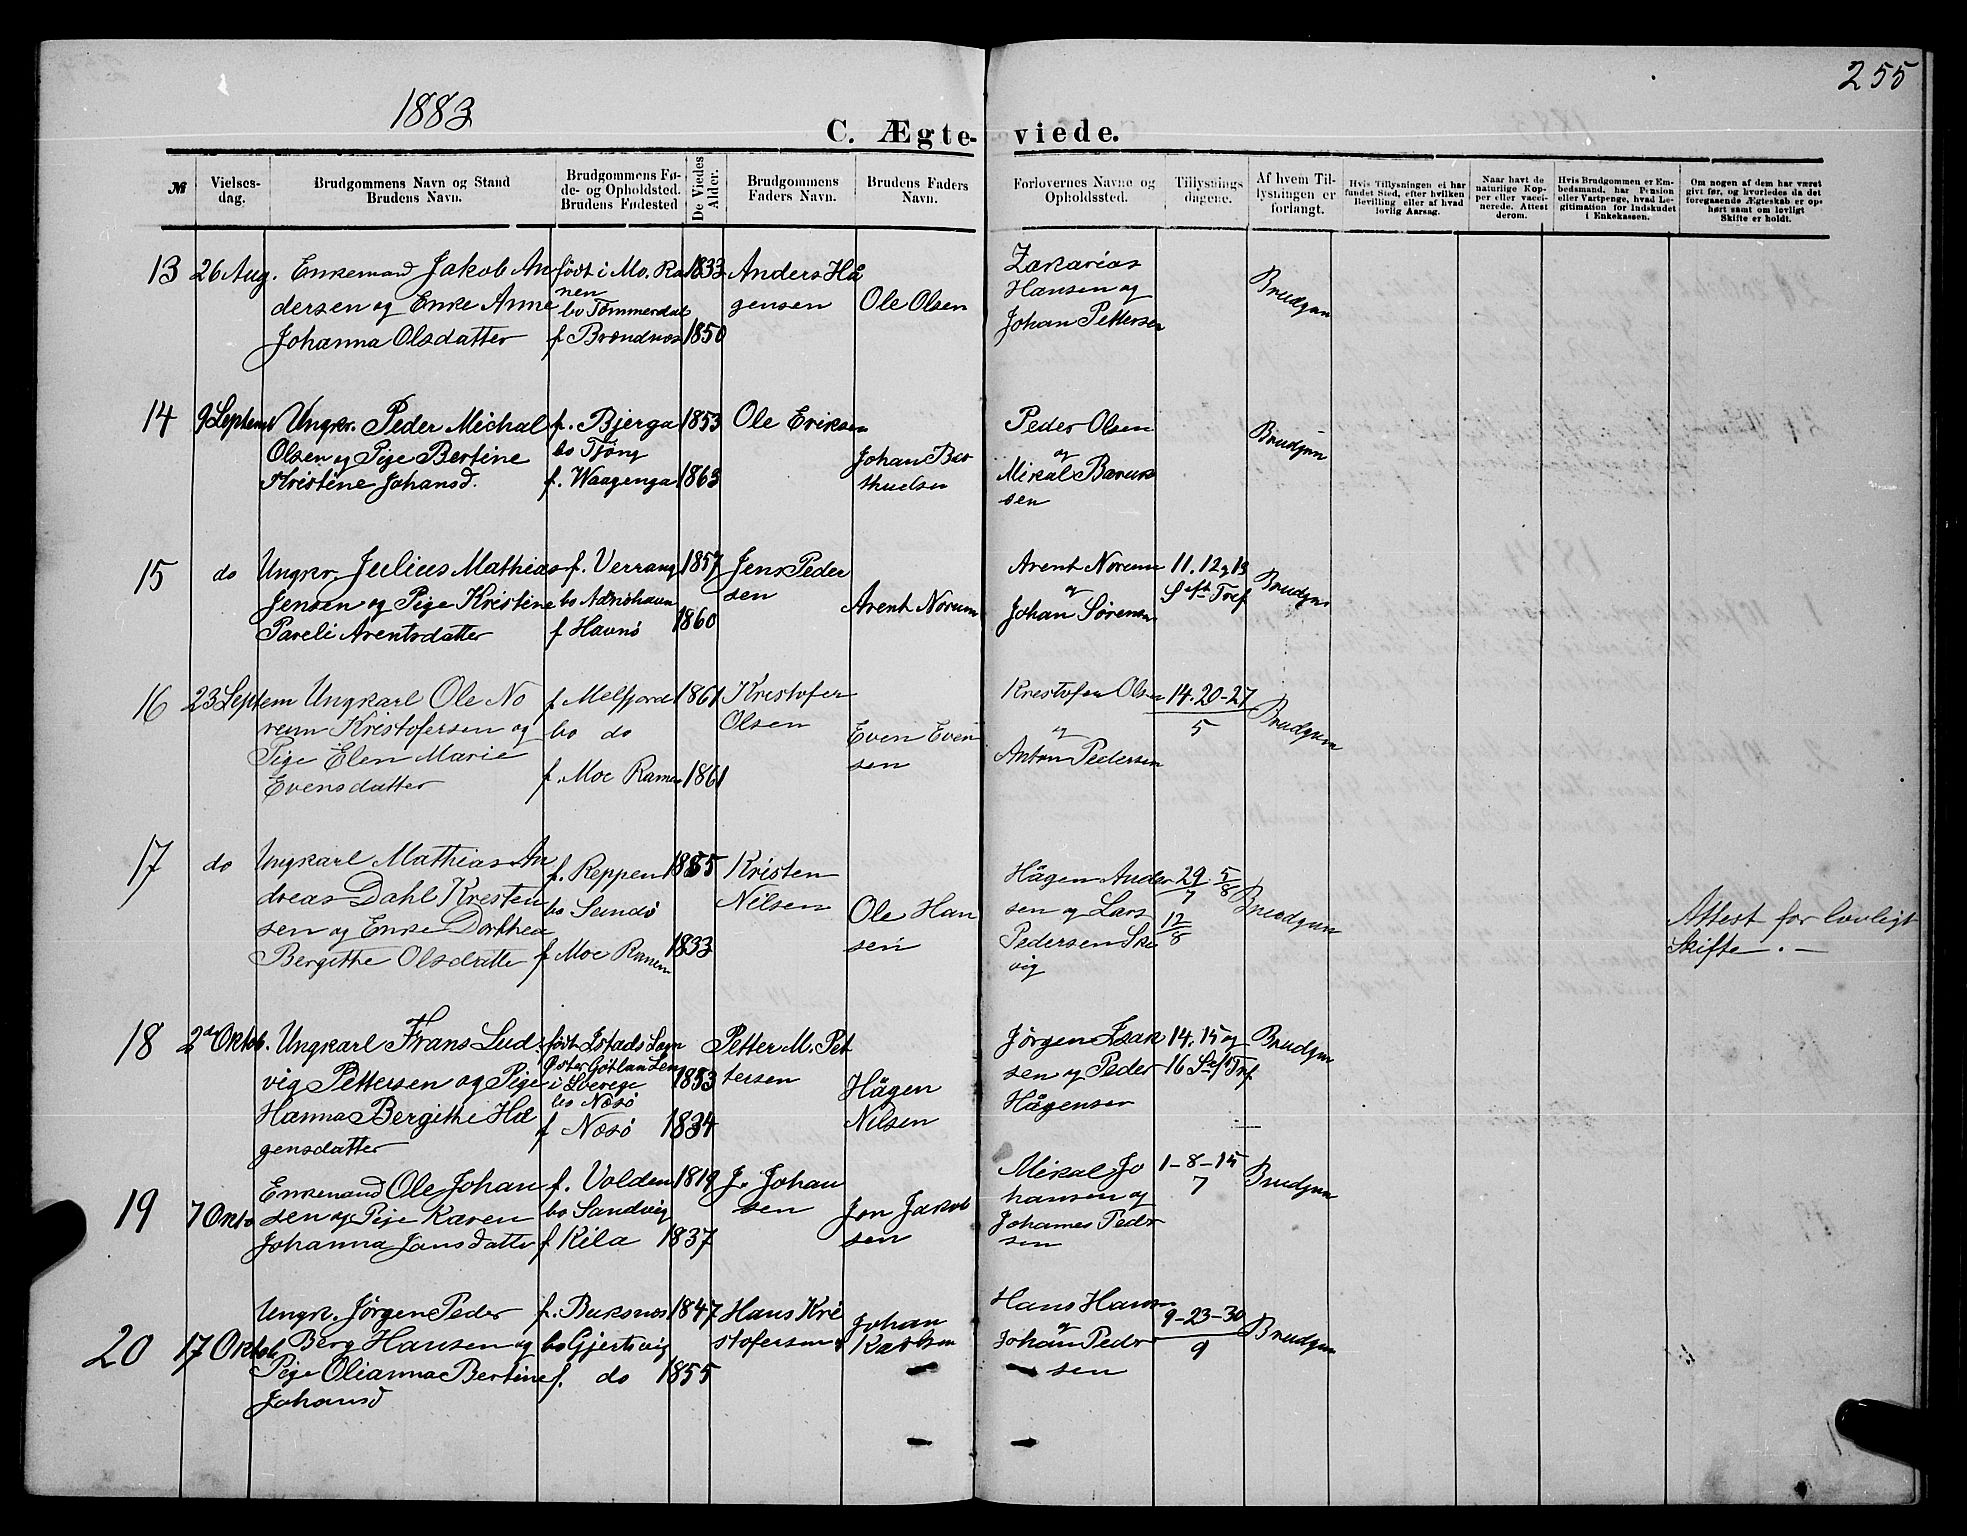 1883
255
C. Ægteviede.
№
Vielsesdag.
Brudgommens Navn og Stand
Brudens Navn.
Brudgommens Føde- og Opholdsted.
Brudens Fødested
De Viedes Alder.
Brudgommens Faders Navn.
Brudens Faders Navn.
Forlovernes Navne og Opholdssted.
Tillysningsdagene.
Af hvem Tillysningen er forlangt.
Hvis Tillysningen ei har fundet Sted, efter hvilken Bevilling eller af hvad lovlig Aarsag.
Naar havt de naturlige Kopper eller vaccinerede. Attest derom.
Hvis Brudgommen er Embedsmand, har Pension eller Vartpenge, hvad Legitimation for Indskudet i Enkekassen.
Om nogen af dem har været givt før, og hvorledes da det foregaaende Ægteskab er ophørt samt om lovligt Skifte er holdt.
13 26 Aug. Enkemand Jakob An
dersen og Enke Anne
Johanna Olsdatter
født i Mo. Ra
nen
bo Tømmerdal
f Brændnæs
1833
1850
Anders Hå
gensen
Ole Olsen
Zakarias
Hansen og
Johan Pettersen
Brudgom
14 9 Septem Ungkr. Peder Michal
Olsen og Pige Bertine
Kristine Johansd.
f. Bjerga
bo Tjong
f. Waagenga
1853
1863
Ole Eriksen
Johan Bar
thudsen
Peder Olsen
og
Mikal Baruk
sen
Brudgom
15 do Ungkr. Julius Mathias
Jensen og Pige Kristine
Pareli Arentsdatter
f. Verrang
bo
f Havnø
1857
1860
Jens Peder
sen
Arent Norum
Arent Norum
og
Johan Sørensen
11. 12 og 13
S. eft Tref
Brudgom
16 23 Septem Ungkarl Ole No
rum Kristofersen og
Pige Elen Marie
Evensdatter
f Melfjord
bo do
f. Moe Ranen
1861
1861
Kristofer
Olsen
Even Even
sen
Kristofer Olsen
og
Anton Pedersen
14. 20 - 27
5
Brudgom
17 do Ungkarl Mathias An
dreas Dahl Kresten
sen og Enke Dorthea
Bergithe Olsdatte
f. Reppen
bo Sundø
f Moe Ranen
1855
1833
Kristen
Nilsen
Ole Han
sen
Hågen Ander
sen og Lars
Pedersen Ske
vig
29/7 5/8
12/8
Brudgom
Attest for lovligt
Skifte. —
18 2de Oktob. Ungkarl Frans Lud
vig Pettersen og Pige
Hanna Bergithe Hå
gensdatter
født Sogn
Øster Gøtlan Len
i Sverege
bo Næsø
f Næsø
1853
1834
Petter M. Pet
tersen
Hågen
Nilsen
Jørgen Isak
sen og Peder
Hågensen
14. 15 og
16 S. eft Tref
Brudgom
19 7 Okto Enkemand Ole Johan
sen og Pige Karen
Johanna Jonsdatte
f. Volden
bo Sandvig
f Kila
1819
1837
J. Johan
sen
Jon Jakob
sen
Mikal Jo
hansen og
Johannes Peder
sen
1 - 8 - 15
7
Brudgom
20 17 Oktob Ungk. Jørgen Peder
Berg Hansen og
Pige Olianna Bertine
Johansd
f. Buksnes
bo Gjertsvig
f. do
1847
1855
Hans Kri
stofersen
Johan
Karlsen
Hans Hansen
og
Johan Peder
sen
9 - 23 - 30
9
Brudgom